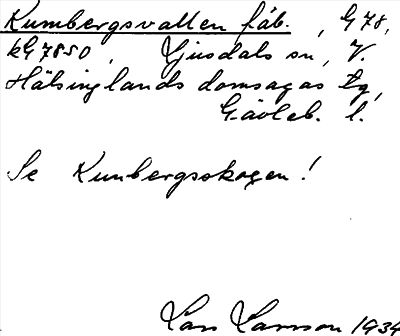 Kumbergsvallen fäb., G 78,
kG 7850, Ljusdals sn, V.
Hälsinglands domsagas tg,
Gävleb. l.
Se Kumbergsskogen!
Lars Larsson 1934